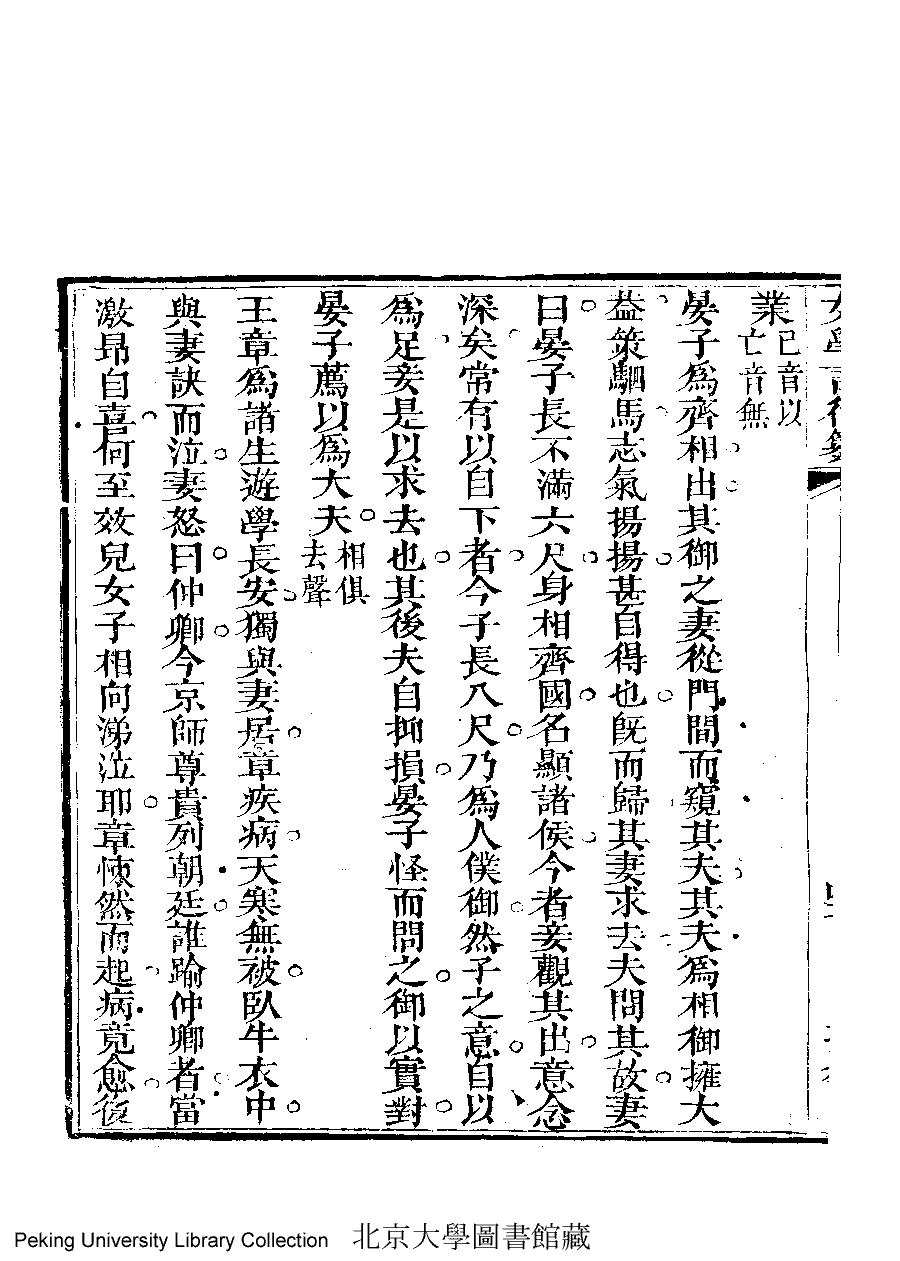 業已音以亡音無
晏子爲齊相出其御之妻從門間而窺其夫其夫爲相御擁大
益策駟馬志氣揚揚甚自得也旣而歸其妻求去夫問其故妻
曰晏子長不滿六尺身相齊國名顯諸侯今者妾觀其出意念
深矣常有以自下者今子長八尺乃爲人僕御然子之意自以
爲足妾是以求去也其後夫自抑損晏子怪而問之御以實對
晏子薦以爲大夫相俱去聲
王章爲諸生遊學長安獨與妻居章疾病天寒無被臥牛衣中
與妻訣而泣妻怒曰仲卿今京師尊貴列朝廷誰踰仲卿者當
激昻自喜何至效兒女子相向涕泣耶章悚然而起病竟愈後
Peking University Library Collection 北京大學圖書館藏